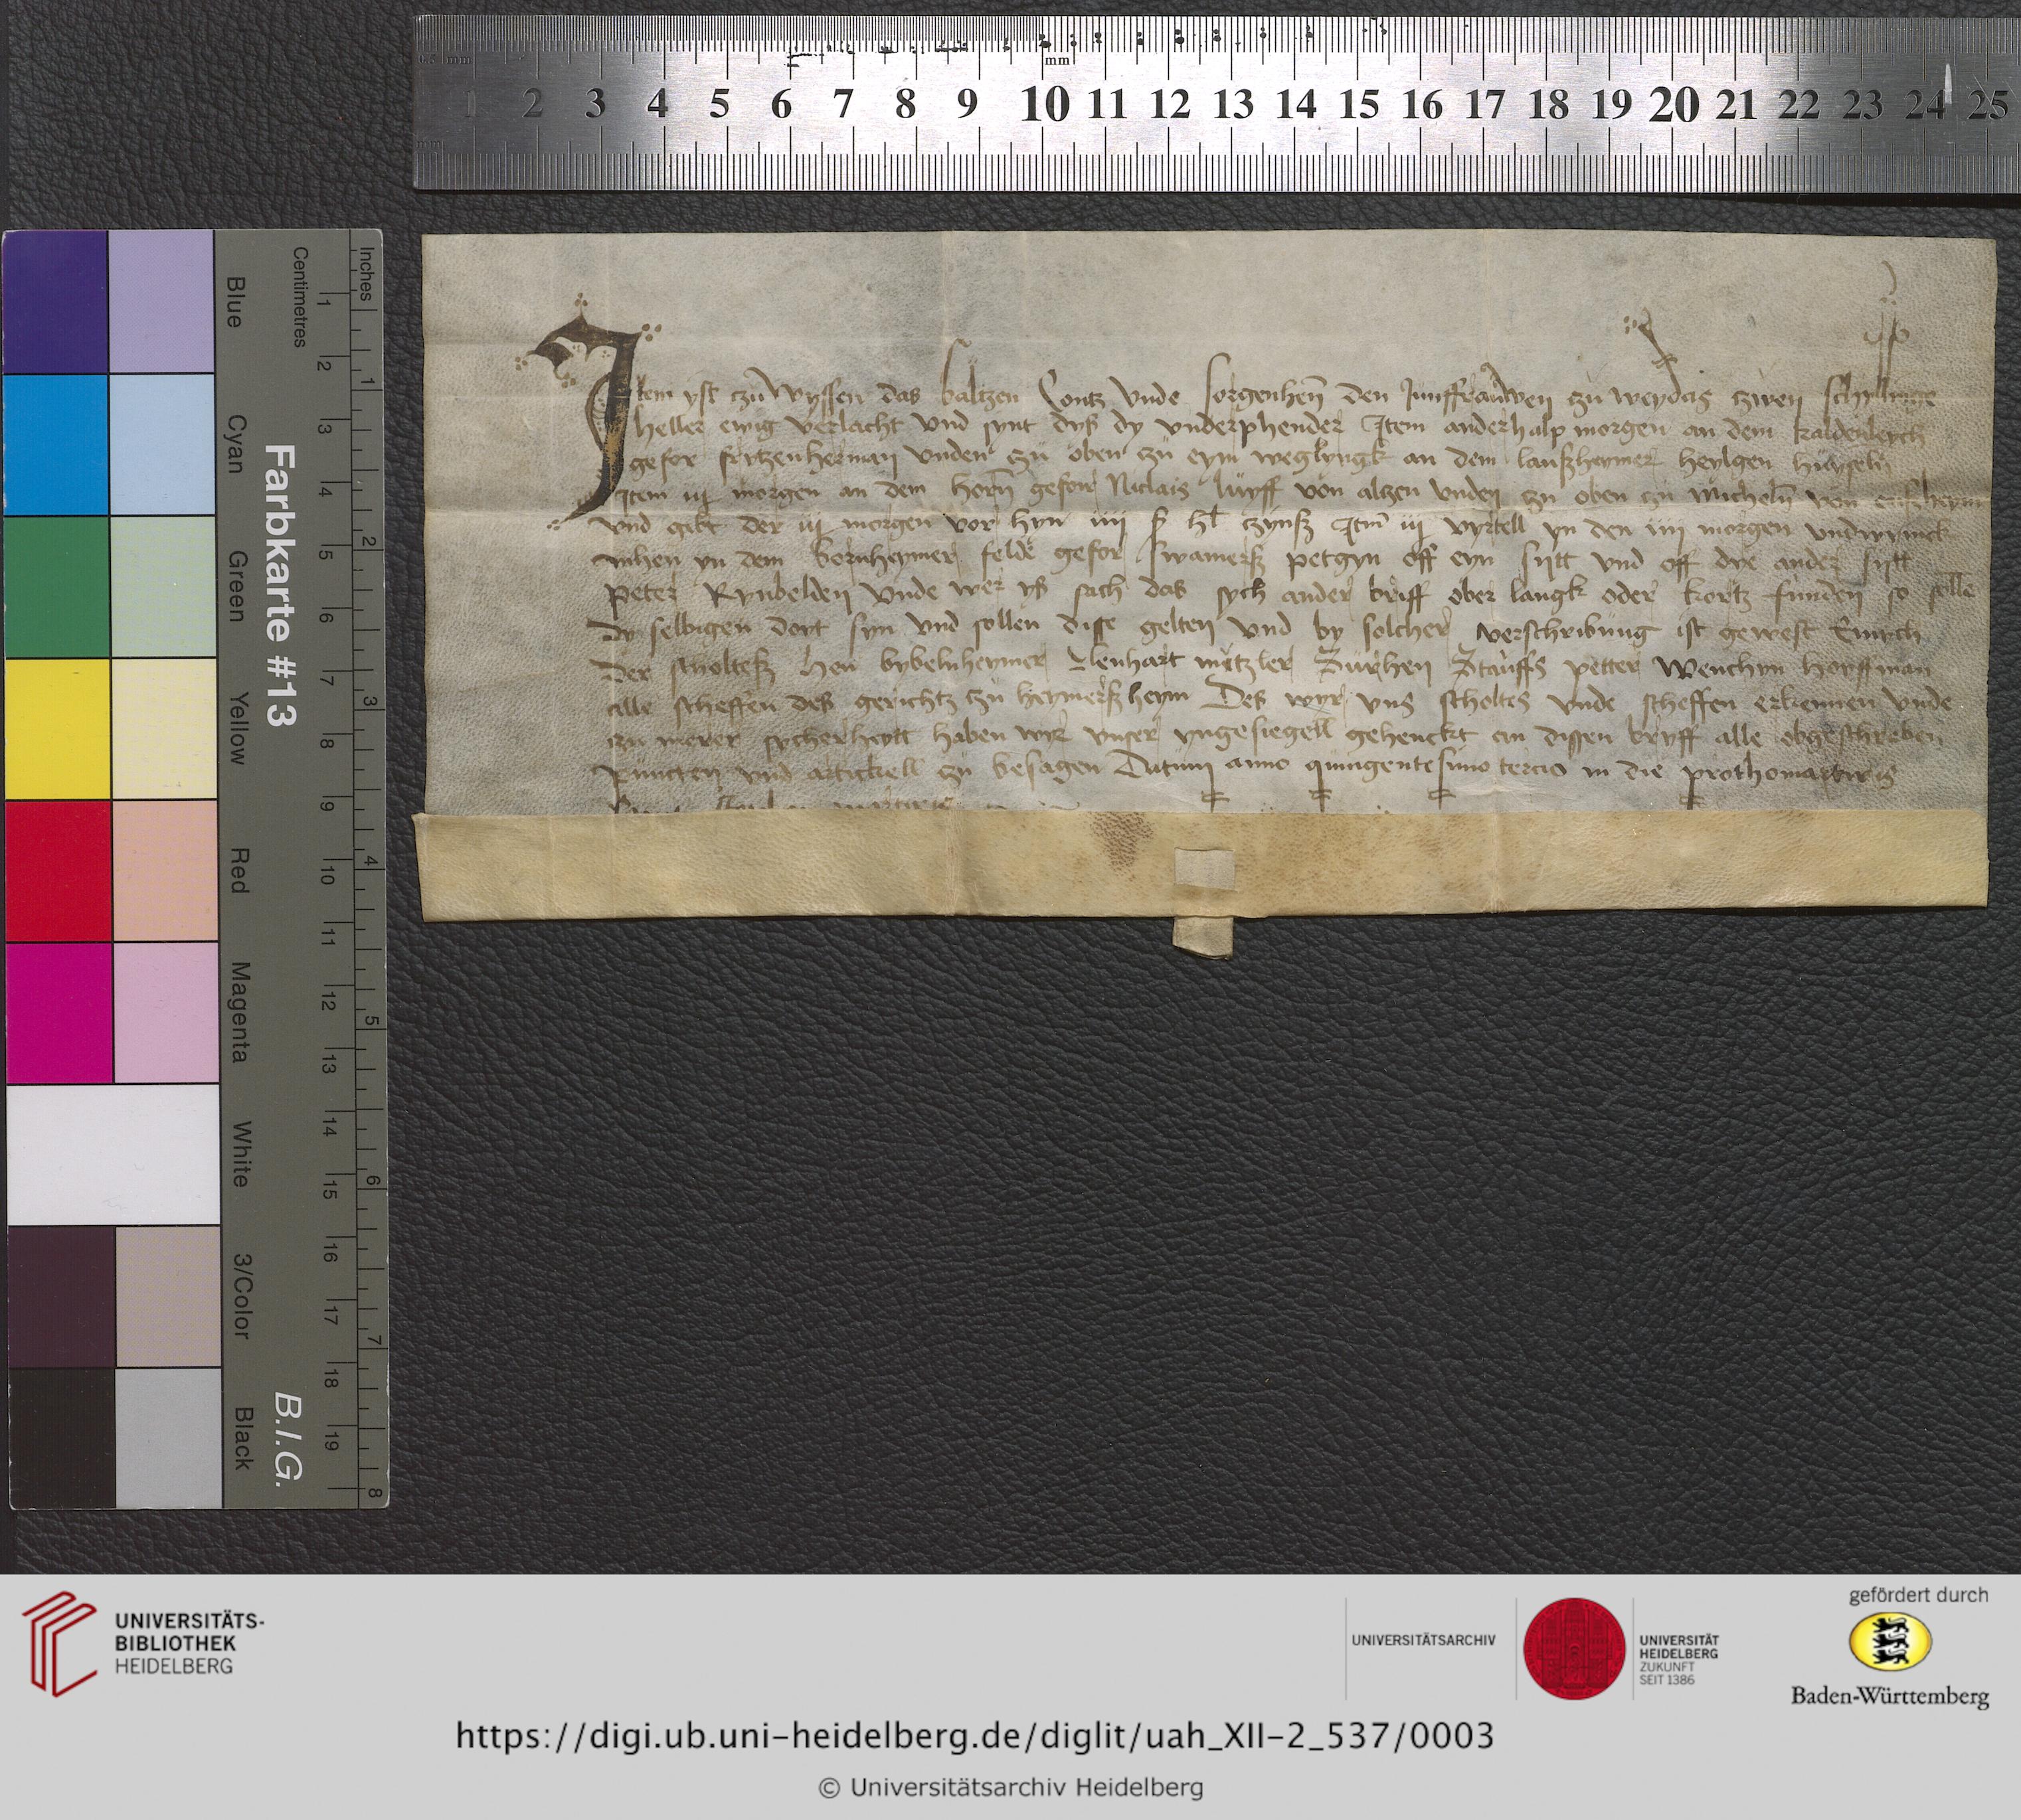 0.5 mm
mm
mm
1 2 3 4 5 6 7 8 9 10 11 12 13 14 15 16 17 18 19 20 21 22 23 24 25
Item yst zu wyssen das baltzen Contz vnde sorgenhen den Junffrauwen zu weydas zwen schyllinge
heller ewig verlacht vnd synt dyß dy vnderphender Item anderhalp morgen an dem
gefor fritzenherman vnden zu oben zu eym weglyngk an dem laußheymer heylgen
Item iij morgen an dem horn gefor Niclais von altzen vnden zu oben zu Micheln von
vnd gibt der iij morgen vor hyn iiij ß hl zynß Itm iij vyrtell yn den iiij morgen
yn dem bornheymer felde gefor swamerß petgyn off eyn sytt vnd off dye ander sytt
Peter Rynbelden vnde wer yß sach das sych ander briff ober langk oder kortz funden so solle
dy selbigen doyt syn vnd sollen disse gelten vnd by solcher verschribung ist gewest Emych
Der scholteß Hen bybelnheymer lenhart metzler petter Wenchyn hoyffman
alle scheffen des gerichtz zu heymerßheym Des wyr vns scholtes vnde scheffen erkennen vnde
zu merer sycherheytt haben wyr vnser yngesiegell gehenckt an dissen bryff alle obgeschreben
puncten vnd artickell zu besagen Datum anno quingentesimo tercio in die prothomartiris
martiris
Farbkarte #13
B.I.G.
Centimetres
Inches
Blue
Cyan
Green
Yellow
Red
Magenta
White
3/Color
Black
1 2 3 4 5 6 7 8 9 10 11 12 13 14 15 16 17 18 19
1 2 3 4 5 6 7 8
UNIVERSITÄTS-
BIBLIOTHEK
HEIDELBERG
UNIVERSITÄTSARCHIV
UNIVERSITÄT
HEIDELBERG
ZUKUNFT
SEIT 1386
gefördert durch
Baden-Württemberg
https://digi.ub.uni-heidelberg.de/diglit/uah_XII-2_537/0003
© Universitätsarchiv Heidelberg